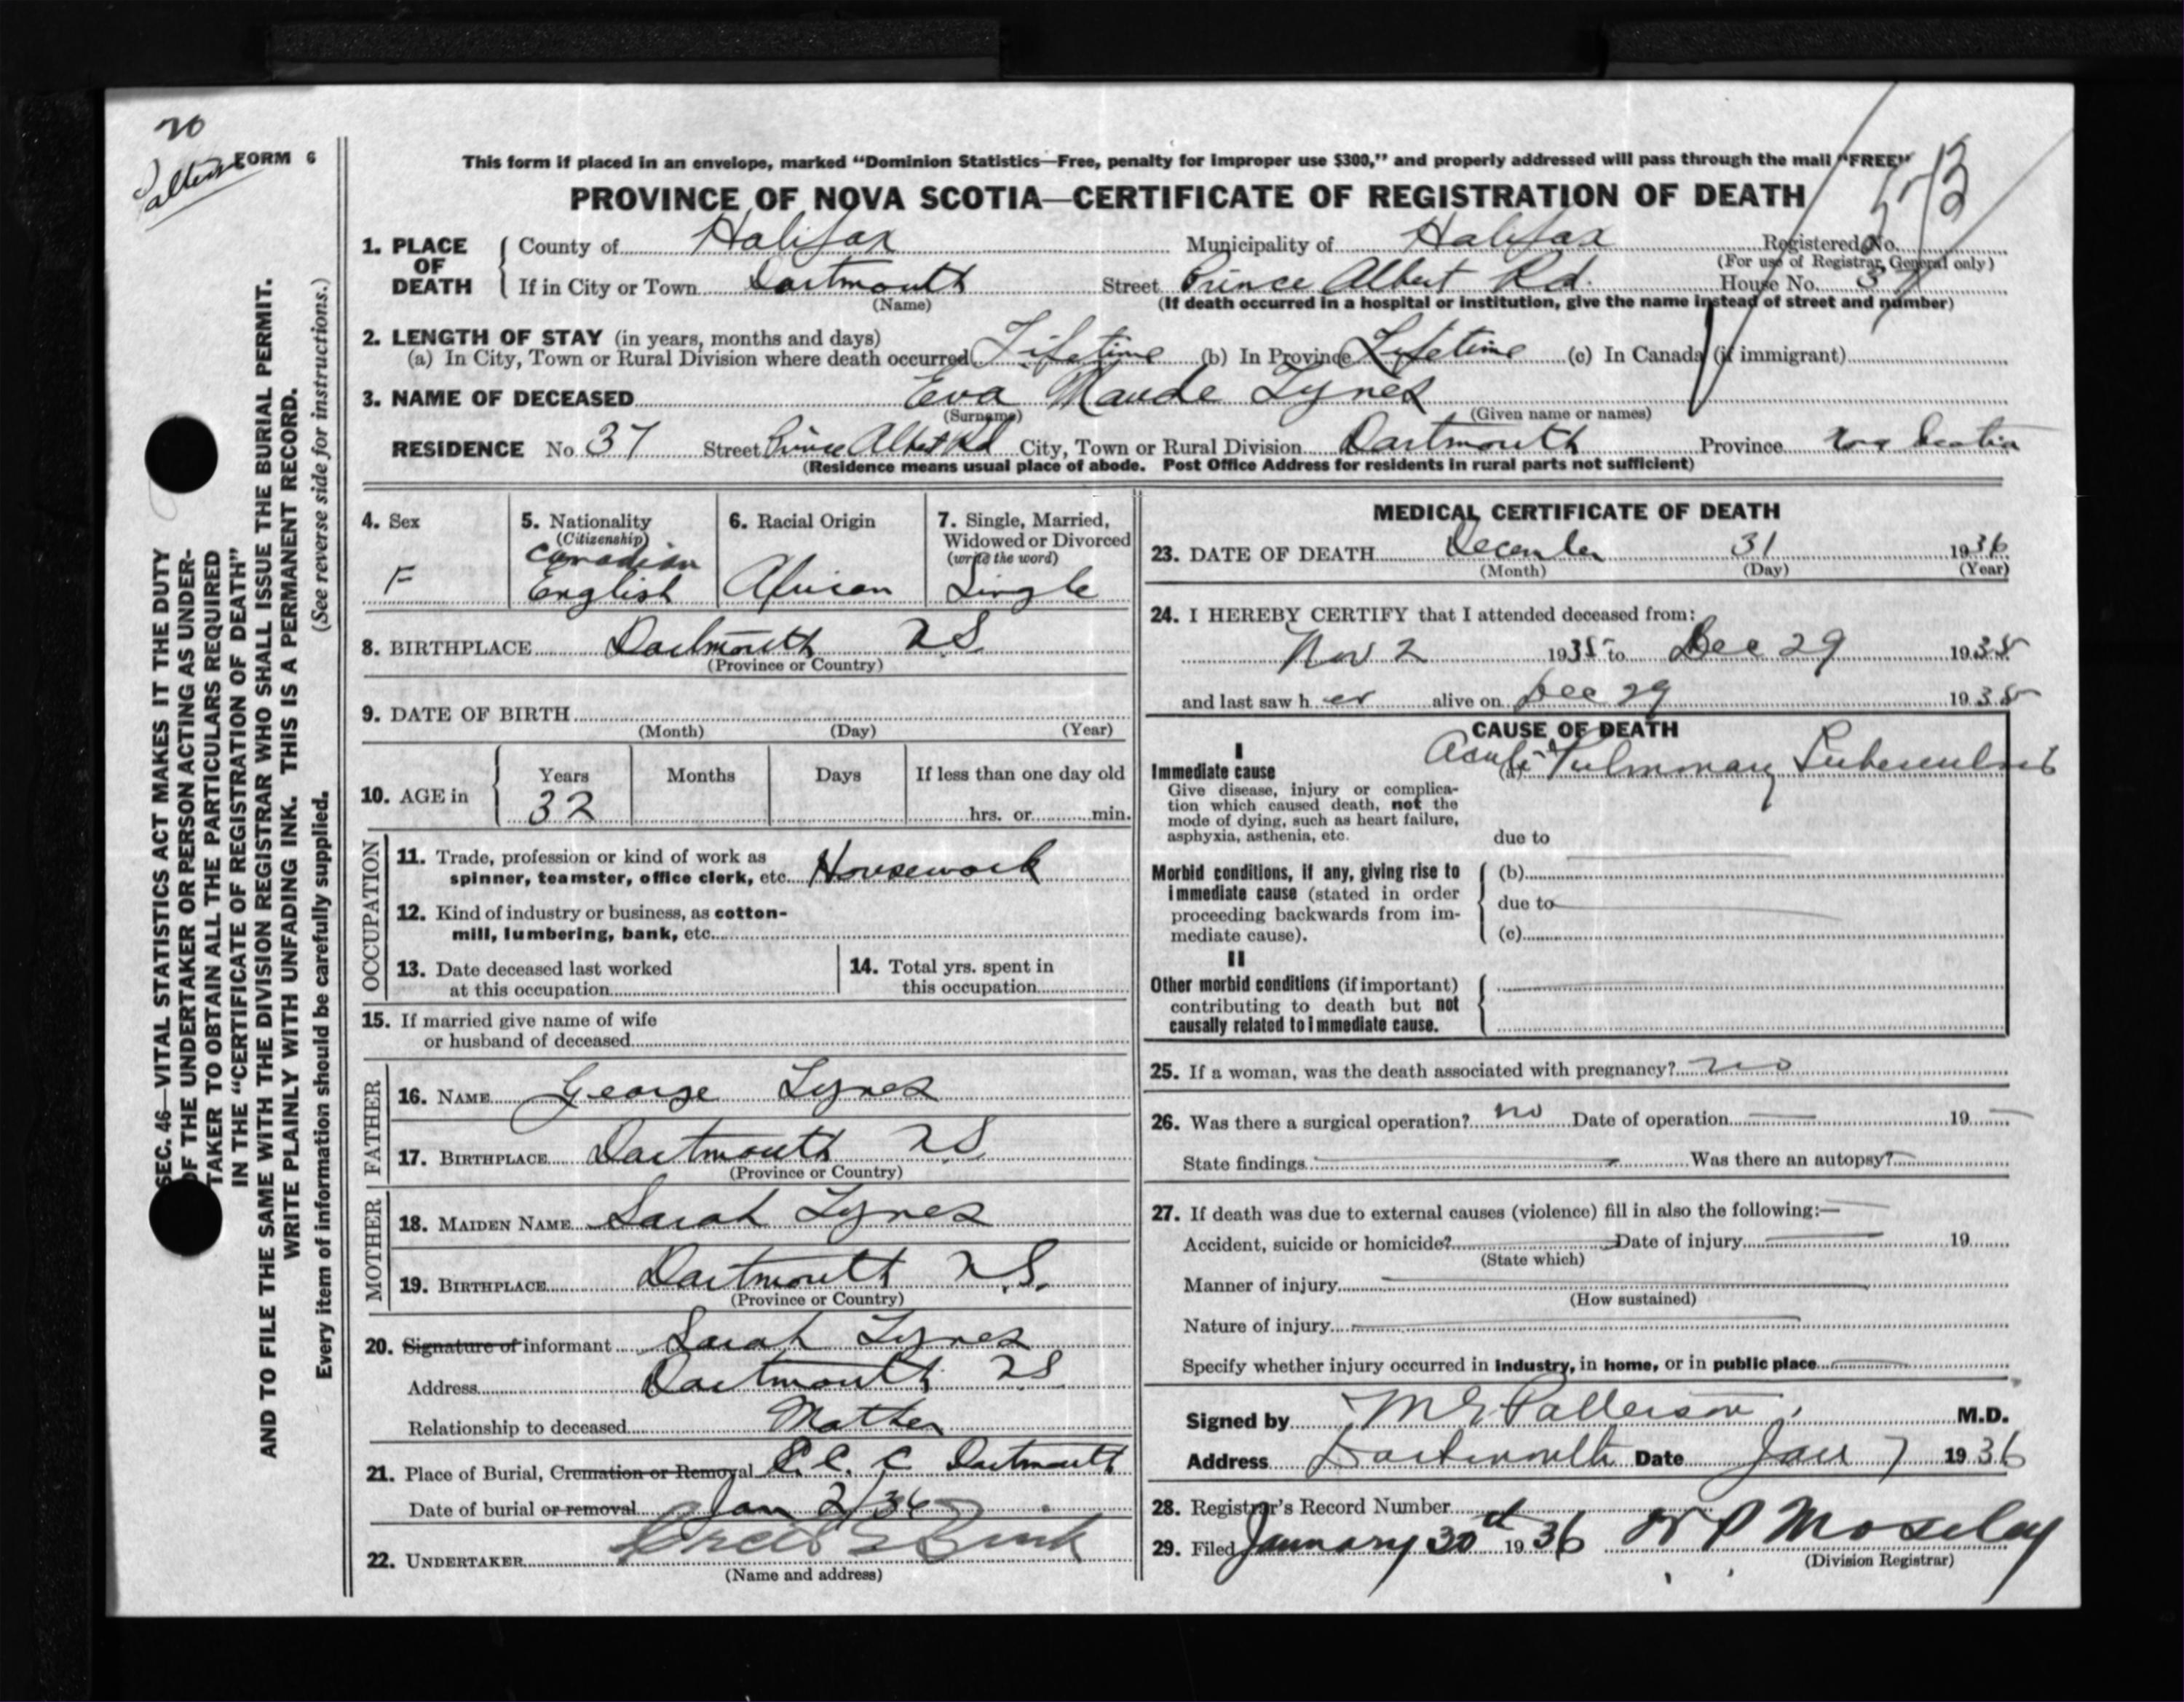 20
FORM 6
This form if placed in an envelope, marked “Dominion Statistics—Free, penalty for improper use $300,” and properly addressed will pass through the mail “FREE”
PROVINCE OF NOVA SCOTIA—CERTIFICATE OF REGISTRATION OF DEATH
1. PLACE OF DEATH County of Halifax Municipality of Halifax Registered No.
(For use of Registrar General only)
If in City or Town Dartmouth Street Prince Albert Rd. House No. 37
(Name) (If death occurred in a hospital or institution, give the name instead of street and number)
2. LENGTH OF STAY (in years, months and days)
(a) In City, Town or Rural Division where death occurred Lifetime (b) In Province Lifetime (c) In Canada (if immigrant)
3. NAME OF DECEASED Eva Maude Lynes
(Surname) (Given name or names)
RESIDENCE No. 37 Street Prince Albert Rd City, Town or Rural Division Dartmouth Province Nova Scotia
(Residence means usual place of abode. Post Office Address for residents in rural parts not sufficient)
4. Sex
F
5. Nationality
(Citizenship)
Canadian
English
6. Racial Origin
African
7. Single, Married,
Widowed or Divorced
(write the word)
Single
8. BIRTHPLACE Dartmouth N.S.
(Province or Country)
9. DATE OF BIRTH
(Month) (Day) (Year)
10. AGE in Years Months Days If less than one day old
32 hrs. or min.
OCCUPATION
11. Trade, profession or kind of work as
spinner, teamster, office clerk, etc. Housework
12. Kind of industry or business, as cotton-
mill, lumbering, bank, etc.
13. Date deceased last worked
at this occupation
14. Total yrs. spent in
this occupation
15. If married give name of wife
or husband of deceased
FATHER
16. NAME George Lynes
17. BIRTHPLACE Dartmouth N.S
(Province or Country)
MOTHER
18. MAIDEN NAME Sarah Lynes
19. BIRTHPLACE Dartmouth N.S.
(Province or Country)
20. Signature of informant Sarah Lynes
Address Dartmouth N.S
Relationship to deceased Mother
21. Place of Burial, Cremation or Removal Dartmouth
Date of burial or removal Jan 2/36
22. UNDERTAKER
(Name and address)
MEDICAL CERTIFICATE OF DEATH
23. DATE OF DEATH December 31 1936
(Month) (Day) (Year)
24. I HEREBY CERTIFY that I attended deceased from:
Nov 2 1935 to Dec 29 1935
and last saw her alive on Dec 29 1935
CAUSE OF DEATH
I
Immediate cause
(a) Acute Pulmonary Tuberculosis
Give disease, injury or complica-
tion which caused death, not the
mode of dying, such as heart failure,
asphyxia, asthenia, etc.
due to
Morbid conditions, if any, giving rise to
immediate cause (stated in order
proceeding backwards from im-
mediate cause).
(b)
due to
(c)
II
Other morbid conditions (if important)
contributing to death but not
causally related to immediate cause.
25. If a woman, was the death associated with pregnancy? no
26. Was there a surgical operation? no Date of operation 19
State findings Was there an autopsy?
27. If death was due to external causes (violence) fill in also the following:—
Accident, suicide or homicide? Date of injury 19
(State which)
Manner of injury
(How sustained)
Nature of injury
Specify whether injury occurred in industry, in home, or in public place
Signed by M G Patterson M.D.
Address Dartmouth Date Jan 7 1936
28. Registrar's Record Number
29. Filed January 30th 1936 Moseley
(Division Registrar)
SEC. 46—VITAL STATISTICS ACT MAKES IT THE DUTY
OF THE UNDERTAKER OR PERSON ACTING AS UNDER-
TAKER TO OBTAIN ALL THE PARTICULARS REQUIRED
IN THE “CERTIFICATE OF REGISTRATION OF DEATH”
AND TO FILE THE SAME WITH THE DIVISION REGISTRAR WHO SHALL ISSUE THE BURIAL PERMIT.
WRITE PLAINLY WITH UNFADING INK. THIS IS A PERMANENT RECORD.
Every item of information should be carefully supplied. (See reverse side for instructions.)